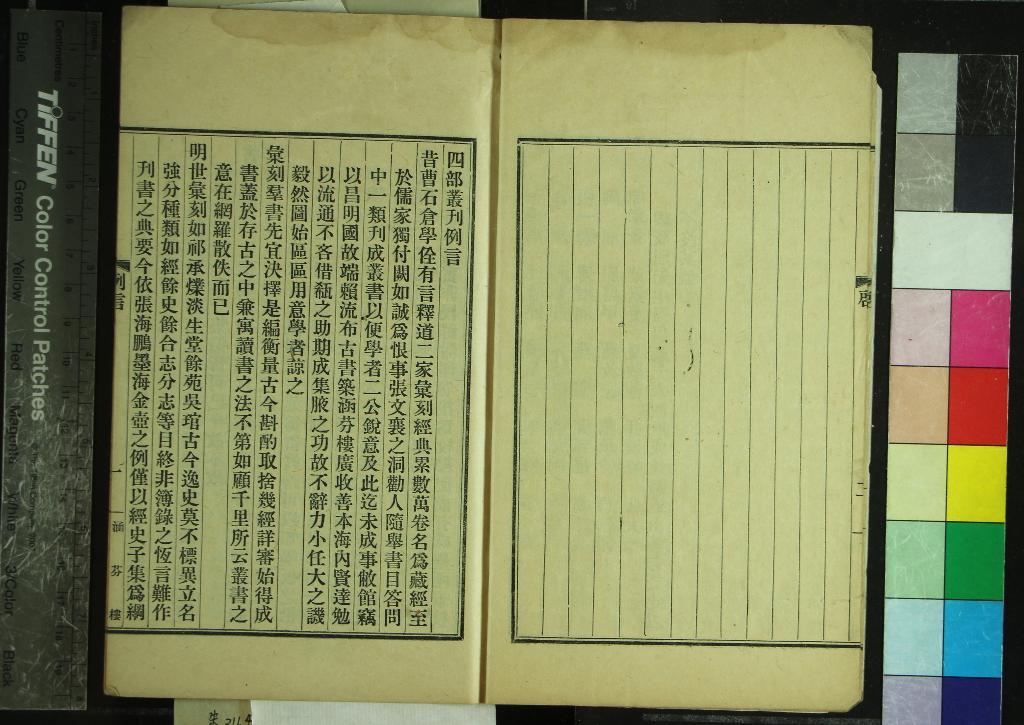 四部叢刊例言
昔曹石倉學佺有言釋道二家彙刻經典累數萬卷名爲藏經至
於儒家獨付闕如誠爲恨事張文襄之洞勸人隨舉書目答問
中一類刋成叢書以便學者二公銳意及此迄未成事敝館竊
以昌明國故端賴流布古書築涵芬樓廣收善本海內賢達勉
以流通不吝借瓻之助期成集腋之功故不辭力小任大之譏
毅然圖始區區用意學者諒之
彙刻羣書先宜決擇是編衡量古今斟酌取捨幾經詳審始得成
書蓋於存古之中兼寓讀書之法不第如顧千里所云叢書之
意在網羅散佚而已
明世彙刻如祁承㸁淡生堂餘苑吳琯古今逸史莫不標異立名
強分種類如經餘史餘合志分志等目終非簿錄之恆言難作
刋書之典要今依張海鵬墨海金壺之例僅以經史子集爲綱
例言
一
涵芬樓
二
Inches
Centimetres
TIFFEN Color Control Patches
Blue
Cyan
Green
Yellow
Red
Magenta
White
3/Color
Black